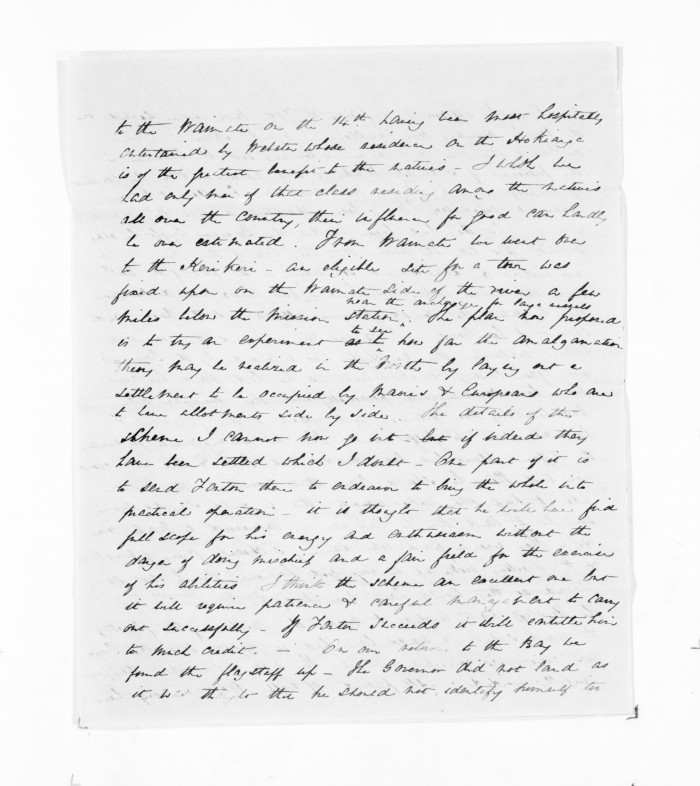 to the Waimate on the 14th having been most hospitably
entertained by Webster whose residence on the Hokianga
is of the greatest benefit to the natives - I wish we
had only men of that class residing among the natives
all over the Country, their influence for good can hardly
be over estimated. From Waimate we went over
to the Keri Keri - an eligible site for a town was
fixed upon on the Waimate side of the river a few
near the anchorage for large vessels
miles below the mission station. The plan now proposed
to see
is to try an experiment as to how far the amalgamation
theory may be realized in the North by laying out a
settlement to be occupied by Maoris & Europeans who are
to have allotments side by side. The details of the
scheme I cannot now go into - but if indeed they
have been settled which I doubt - One part of it is
to send Fenton there to endeavor to bring the whole into
practical operation - it is thought that he will here find
full scope for his energy and enthusiasm without the
danger of doing mischief and a fair field for the exercise
of his abilities I think the scheme an excellent one but
it will require patience & careful management to carry
out successfully - If Fenton succeeds it will entitle him
to much credit. - On our return to the Bay we
found the flagstaff up - The Governor did not land as
it was that he should not identify himself too